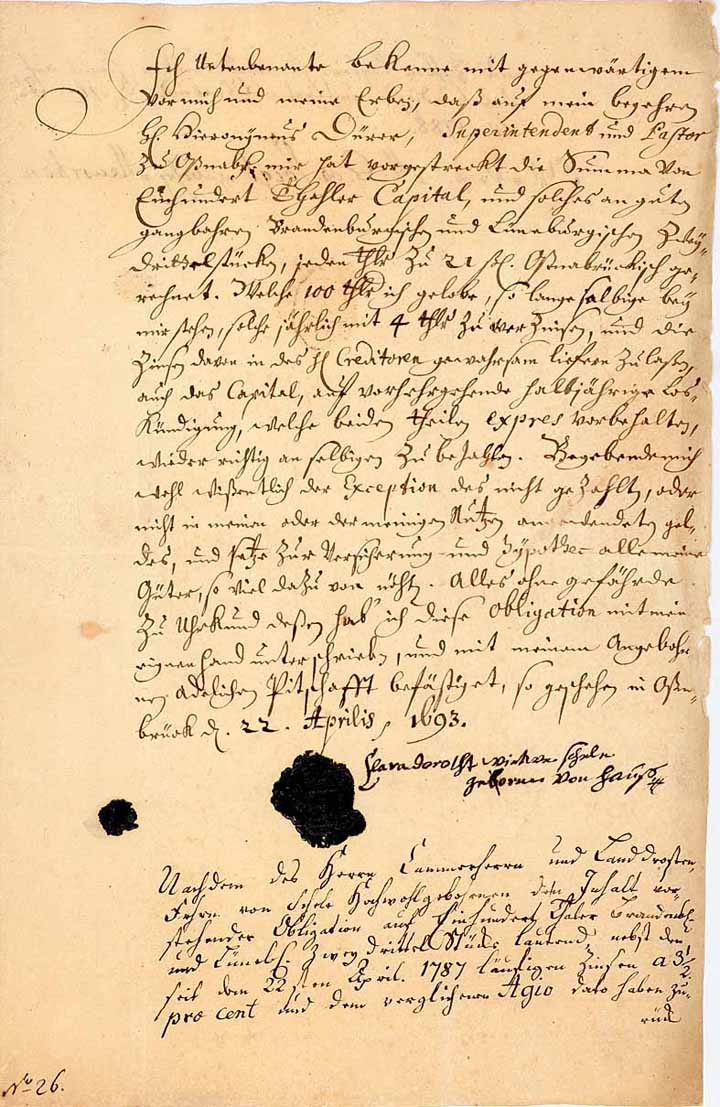 Ich Untenbenante bekenne mit gegenwärtigem
vor mich und meine Erben, daß auf mein begehren
H. Hieronymus Dürer, Superintendent und Pastor
zu Oßnabr. mir hat vorgestreckt die Summa von
Einhundert Thaler Capital, und solches an guten
gangbahren Brandenburgischen und Lüneburgischen Zwey-
drittelstücken, jeden thlr zu 21 ßl. Oßnabrückisch ge-
rechnet. Welche 100 thlr ich gelobe, so lange selbige bey
mir stehen, solche jährlich mit 4 thlr zu verzinsen, und die
Zinsen davon in des H. Creditoren gewahrsam liefern zulaßen,
auch das Capital, auf vorhergehende halbjährige Los-
kündigung, welche beiden theilen expres vorbehalten,
wieder richtig an selbigen zu bezahlen. Begebende mich
wohl wißentlich der Exception des nicht gezahlten, oder
nicht in meinen oder der meinigen Nutzen angewendeten gel-
des, und setze zur Versicherung und Hypothec alle meine
Güter, so viel dazu von nöhten. Alles ohne gefährde
Zu Uhrkund deßen hab ich diese Obligation mit mein
eigenen hand unterschrieben, und mit meinem Angebohr-
nen Adelichen Pitschafft befästiget, so geschehen in Oßna-
brück d. 22. Aprilis, 1693.
Clara dorotht witwe schele
geborne von hauß
Nachdem des Herrn Cammerherrn und Landdrosten,
Frhrn. von Schele Hochwohlgebohrnen den Inhalt vor-
stehender Obligation auf Einhundert Thaler Brandenb.
und Lüneb. Zwey drittel Stücke lautend, nebst den
seit dem 22sten April. 1787 läufigen Zinsen a 3 1/2
pro cent und dem verglichenen Agio dato haben zu-
rück
No 26.